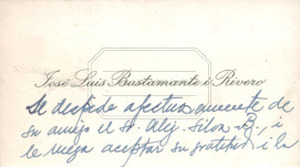 José Luis Bustamante i Rivero
Se despide afectuosamente de
su amigo el Sr. Alej. Silva B., i
le ruega aceptar su gratitud i la